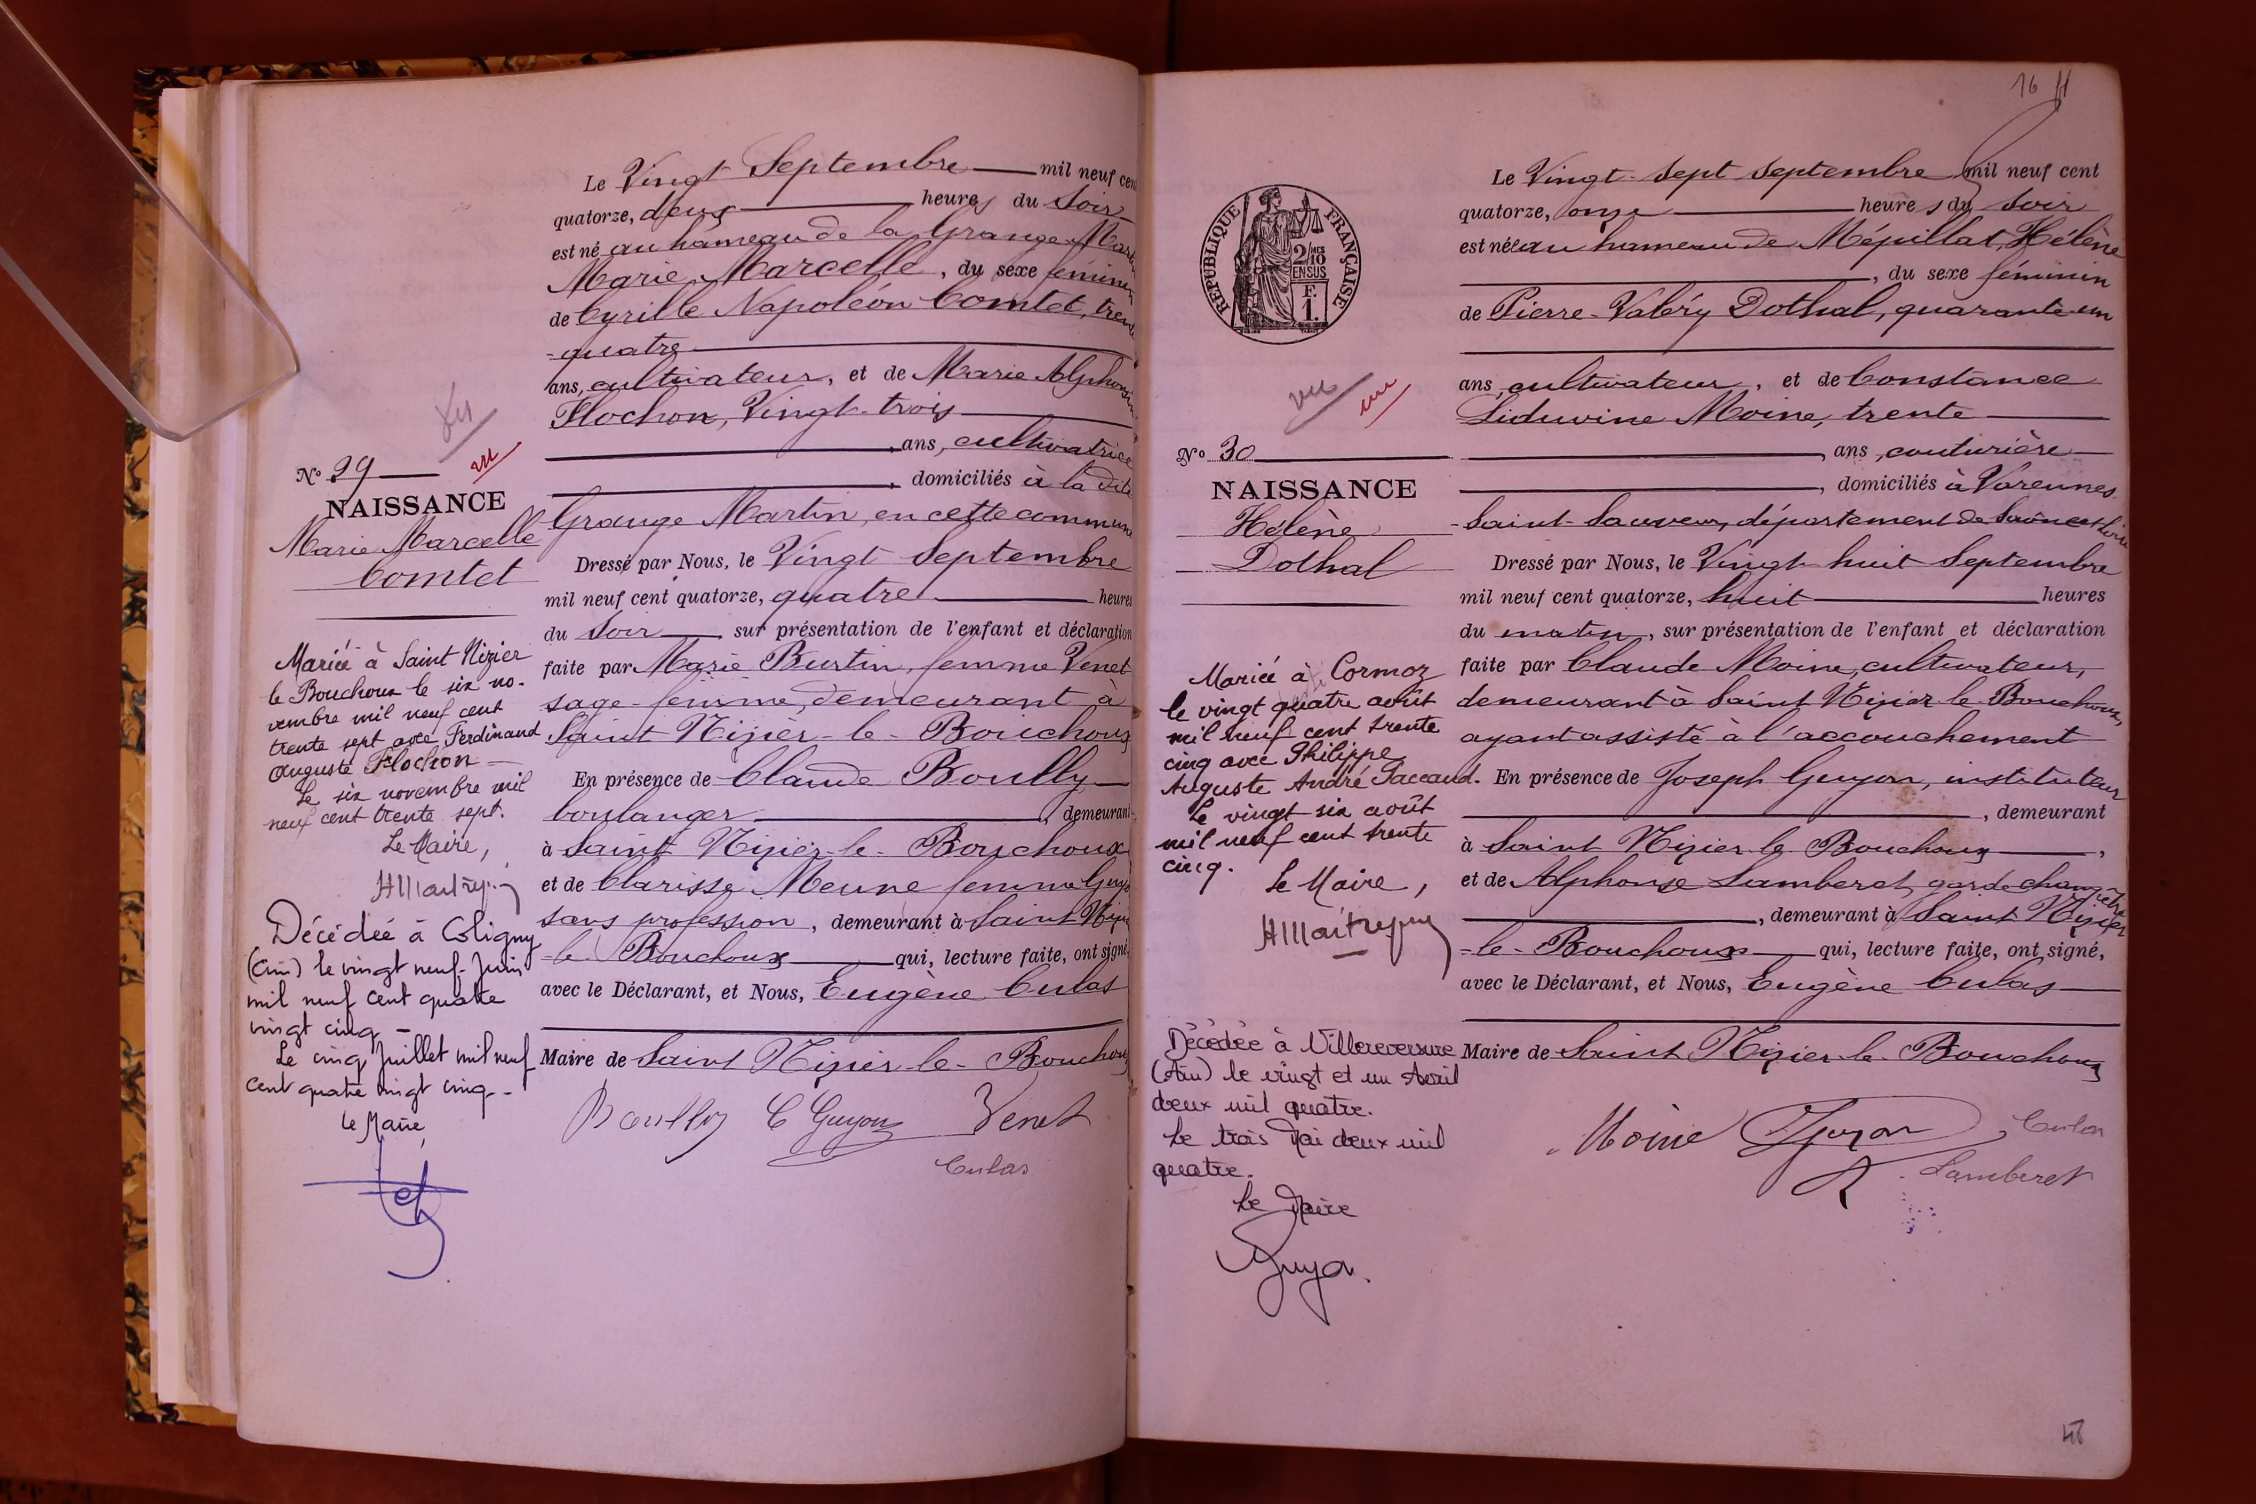 Le Vingt Septembre mil neuf cent
quatorze, deux heures du Soir
est né au hameau de la Grange Martin
Marie Marcelle, du sexe féminin
de Cyrille Napoléon Comtet, trente
-quatre
ans, cultivateur, et de Marie Alphonsine
Flochon, Vingt-trois
, ans, cultivatrice
, domiciliés à la dite
Grange Martin, en cette commune
Dressé par Nous, le Vingt Septembre
mil neuf cent quatorze, quatre heures
du Soir, sur présentation de l'enfant et déclaration
faite par Marie Burtin, femme Venet
sage-femme, demeurant à
Saint Nizier-le-Bouchoux
En présence de Claude Boully
boulanger, demeurant
à Saint Nizier-le-Bouchoux
et de Clarisse Meune femme Guyon
sans profession, demeurant à Saint Nizier
-le-Bouchoux qui, lecture faite, ont signé
avec le Déclarant, et Nous, Eugène Culas
Maire de Saint Nizier-le-Bouchoux
Boully C Guyon Venet
Culas
vu
vu
N° 29
NAISSANCE
Marie Marcelle
Comtet
Mariée à Saint Nizier
le Bouchoux le six no-
vembre mil neuf cent
trente sept avec Ferdinand
Auguste Flochon
Le six novembre mil
neuf cent trente sept.
Le Maire,
Décédée à Coligny
(Ain) le vingt neuf Juin
mil neuf cent quatre
vingt cinq -
Le cinq Juillet mil neuf
cent quatre vingt cinq -
Le Maire,
16
Le Vingt-sept septembre mil neuf cent
quatorze, onze heures du soir
est née au hameau de Mépillat, Hélène
, du sexe féminin
de Pierre-Valéry Dothal, quarante-un
ans, cultivateur, et de Constance
Liduvine Moine, trente
, ans, couturière
, domiciliés à Varennes
-Saint-Sauveur, département de Saône et Loire
Dressé par Nous, le Vingt-huit Septembre
mil neuf cent quatorze, huit heures
du matin, sur présentation de l'enfant et déclaration
faite par Claude Moine, cultivateur,
demeurant à Saint Nizier-le-Bouchoux,
ayant assisté à l'accouchement
En présence de Joseph Guyon, instituteur
, demeurant
à Saint Nizier-le-Bouchoux,
et de Alphonse Lamberet, garde champêtre
, demeurant à Saint-Nizier
-le-Bouchoux qui, lecture faite, ont signé,
avec le Déclarant, et Nous, Eugène Culas
Maire de Saint Nizier-le-Bouchoux
Moine Guyon Culas
Lamberet
RÉPUBLIQUE FRANÇAISE
2/10
EN SUS
F.
1.
vu
vu
N° 30
NAISSANCE
Hélène
Dothal
Mariée à Cormoz
le vingt quatre août
mil neuf cent trente
cinq avec Philippe
Auguste André Paccaud.
Le vingt six août
mil neuf cent trente
cinq.
Le Maire,
Décédée à Villereversure
(Ain) le vingt et un Avril
deux mil quatre.
Le trois Mai deux mil
quatre.
Le Maire
Guyon